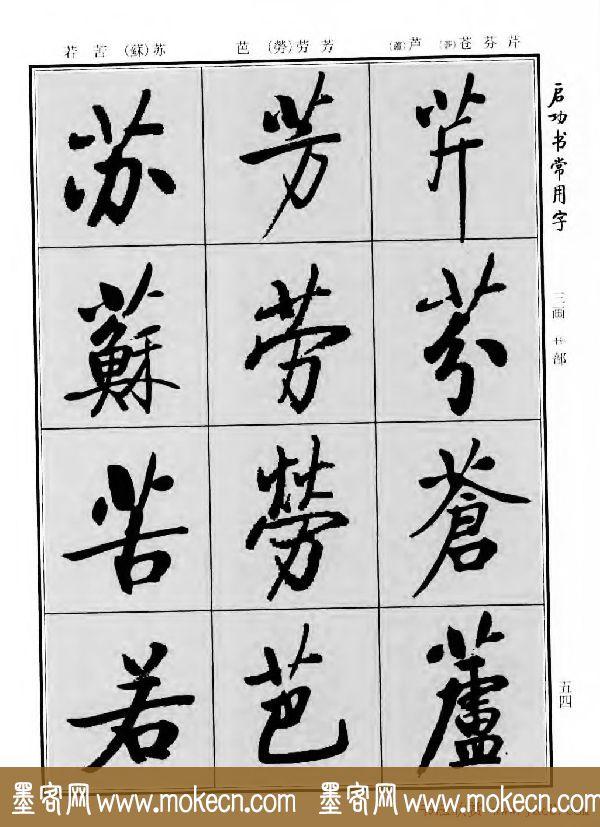 芹芬苍(蒼)芦(蘆)
芳劳(勞)芭
苏(蘇)苦若
启功书常用字
三画 艹部
五四
芹
芬
蒼
蘆
芳
劳
勞
芭
苏
蘇
苦
若
墨客网 www.mokecn.com 墨客网 www.mokecn.com